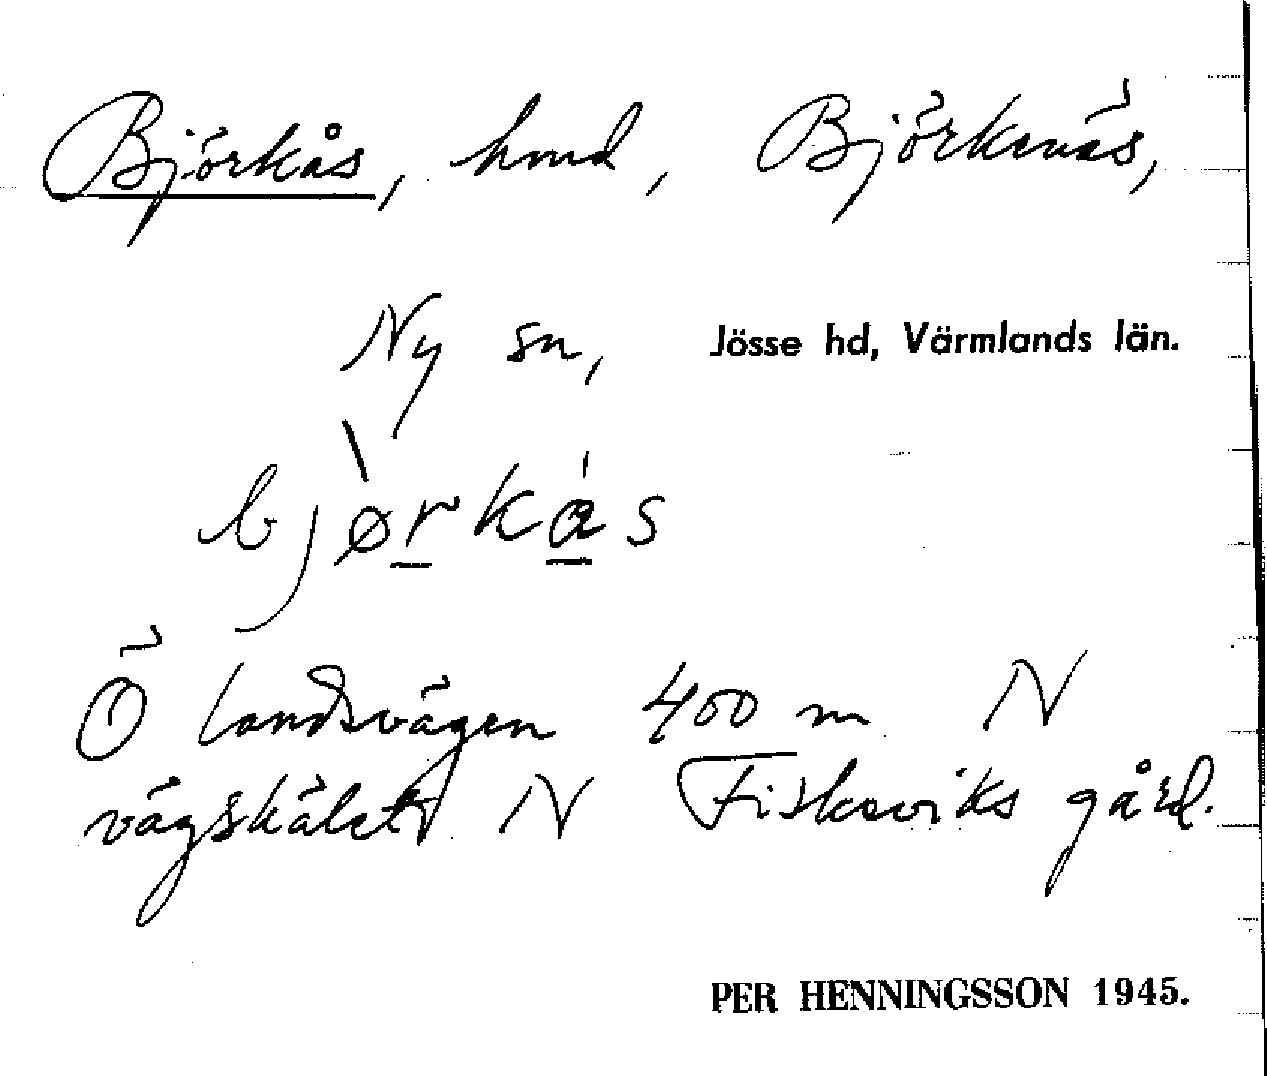 Björkås, hmd, Björknäs,
Ny sn, Jösse hd, Värmlands län.
bjø̀rkás
Ö landsvägen 400 m N
vägskälet N Fiskeviks gård.
PER HENNINGSSON 1945.